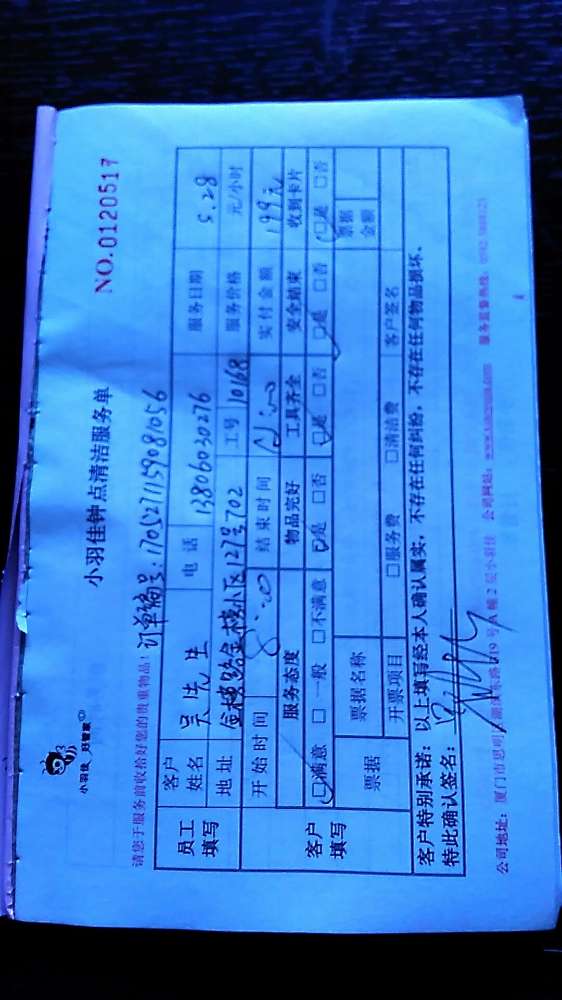 小羽佳 好管家
小羽佳钟点清洁服务单
NO.0120517
请您于服务前收拾好您的贵重物品！
订单编号:170527115908 1056
员工填写
客户姓名 吴先生 电话 13806030276 服务日期 5.28
地址 金榜路金榜小区127号702 工号 10168 服务价格 元/小时
客户填写
开始时间 8:00 结束时间 12:00 实付金额 199元
服务态度 物品完好 工具齐全 安全结束 收到卡片
□满意 □一般 □不满意 □是 □否 □是 □否 □是 □否 □是 □否
票据 票据名称 票据金额
开票项目 □服务费 □清洁费 客户签名
客户特别承诺：以上填写经本人确认属实，不存在任何纠纷，不存在任何物品损坏、
特此确认签名：
公司地址：厦门市思明区湖滨东路319号A幢2层小羽佳 公司网站： 服务监督热线：